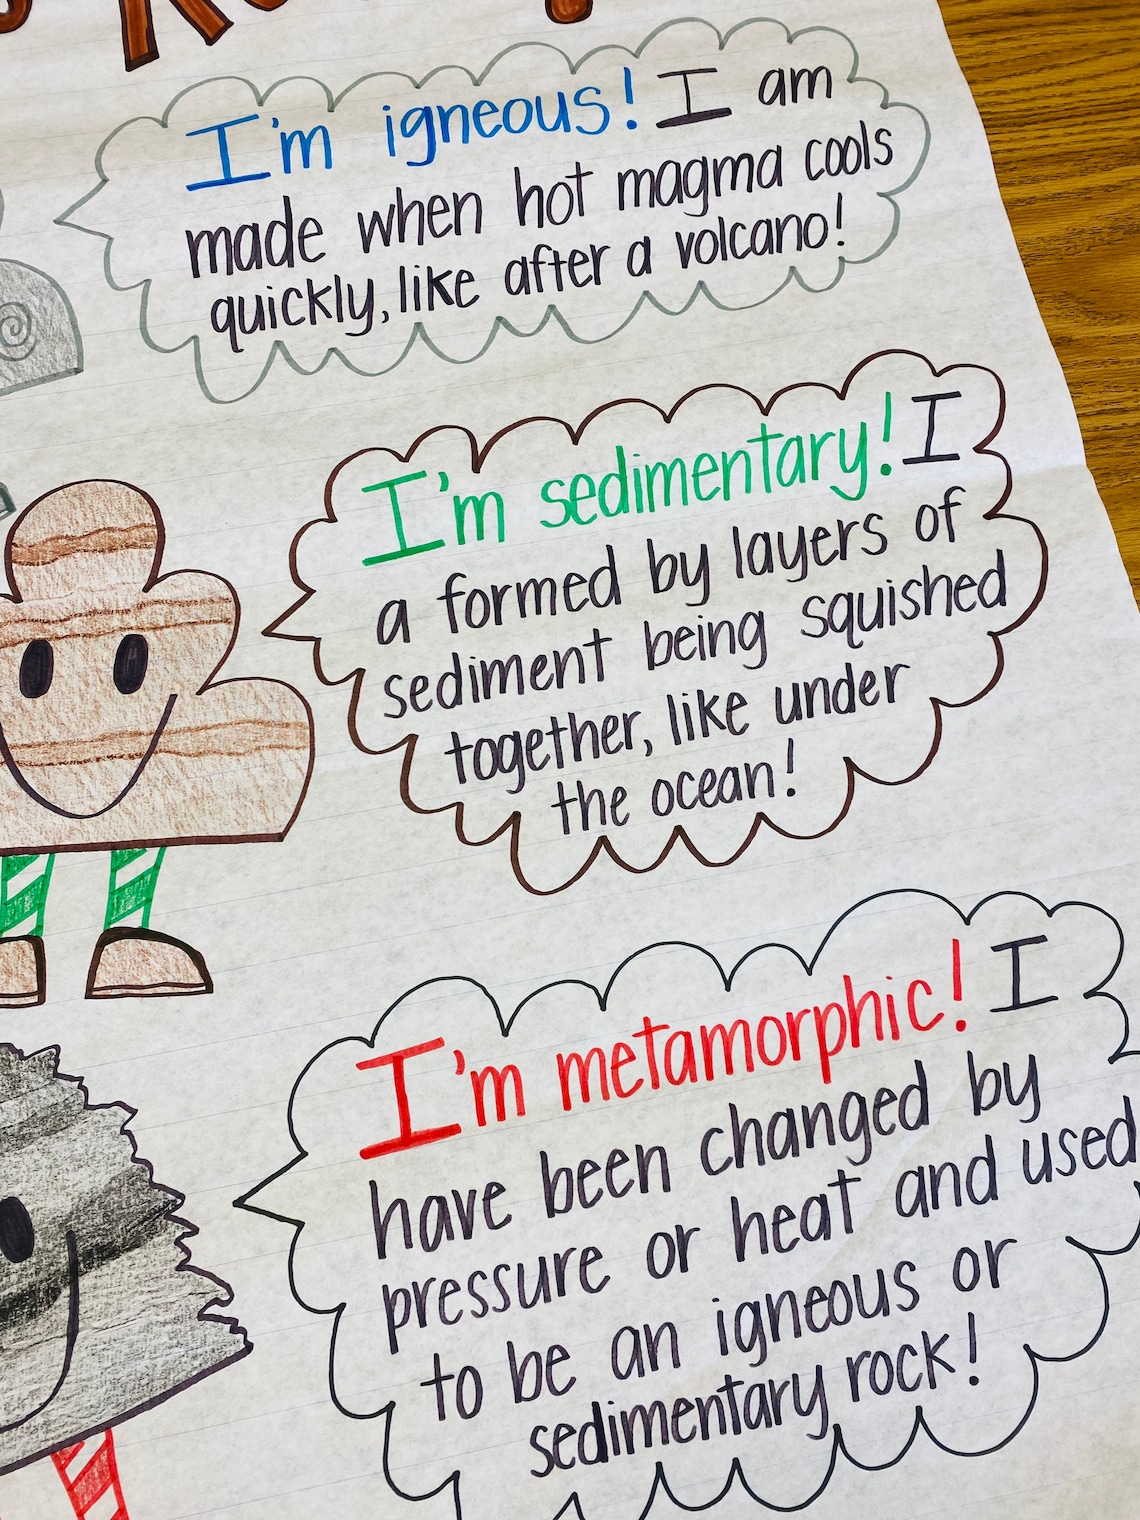 I'm igneous! I am
made when hot magma cools
quickly, like after a volcano!
I'm sedimentary! I
a formed by layers of
sediment being squished
together, like under
the ocean!
I'm metamorphic! I
have been changed by
pressure or heat and used
to be an igneous or
sedimentary rock!